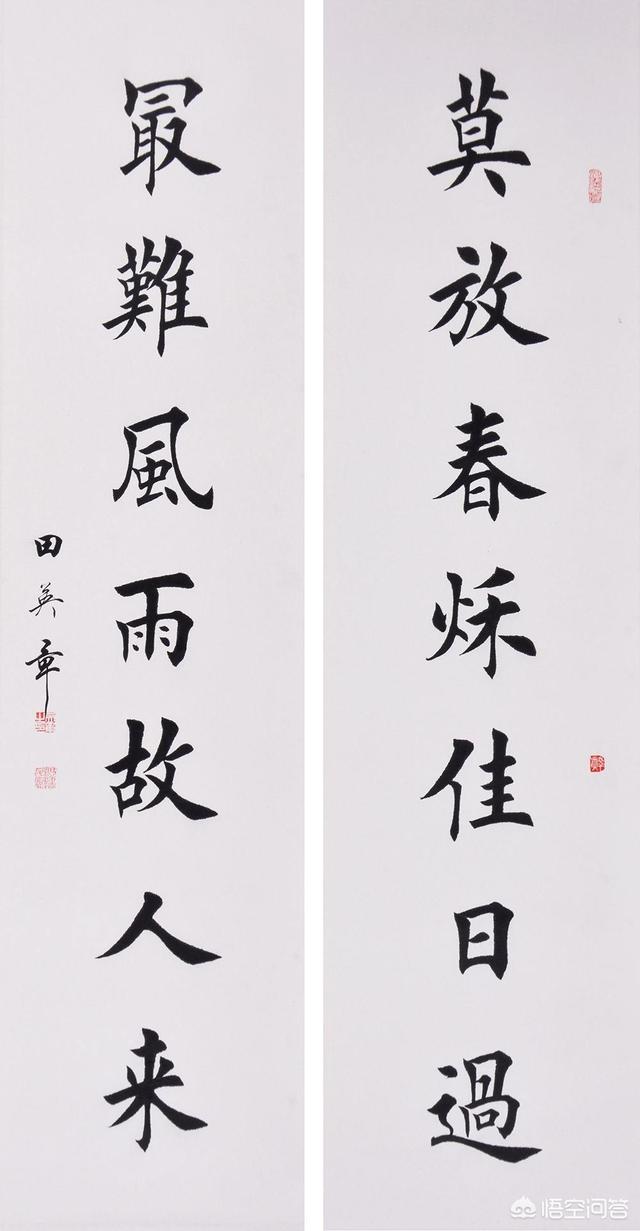 莫放春烁佳日過
冣難風雨故人来
田英章
悟空问答